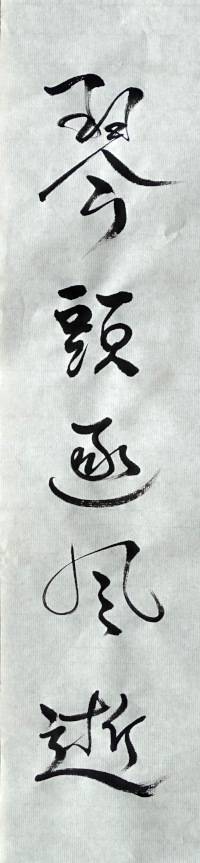 琴頭逐風逝